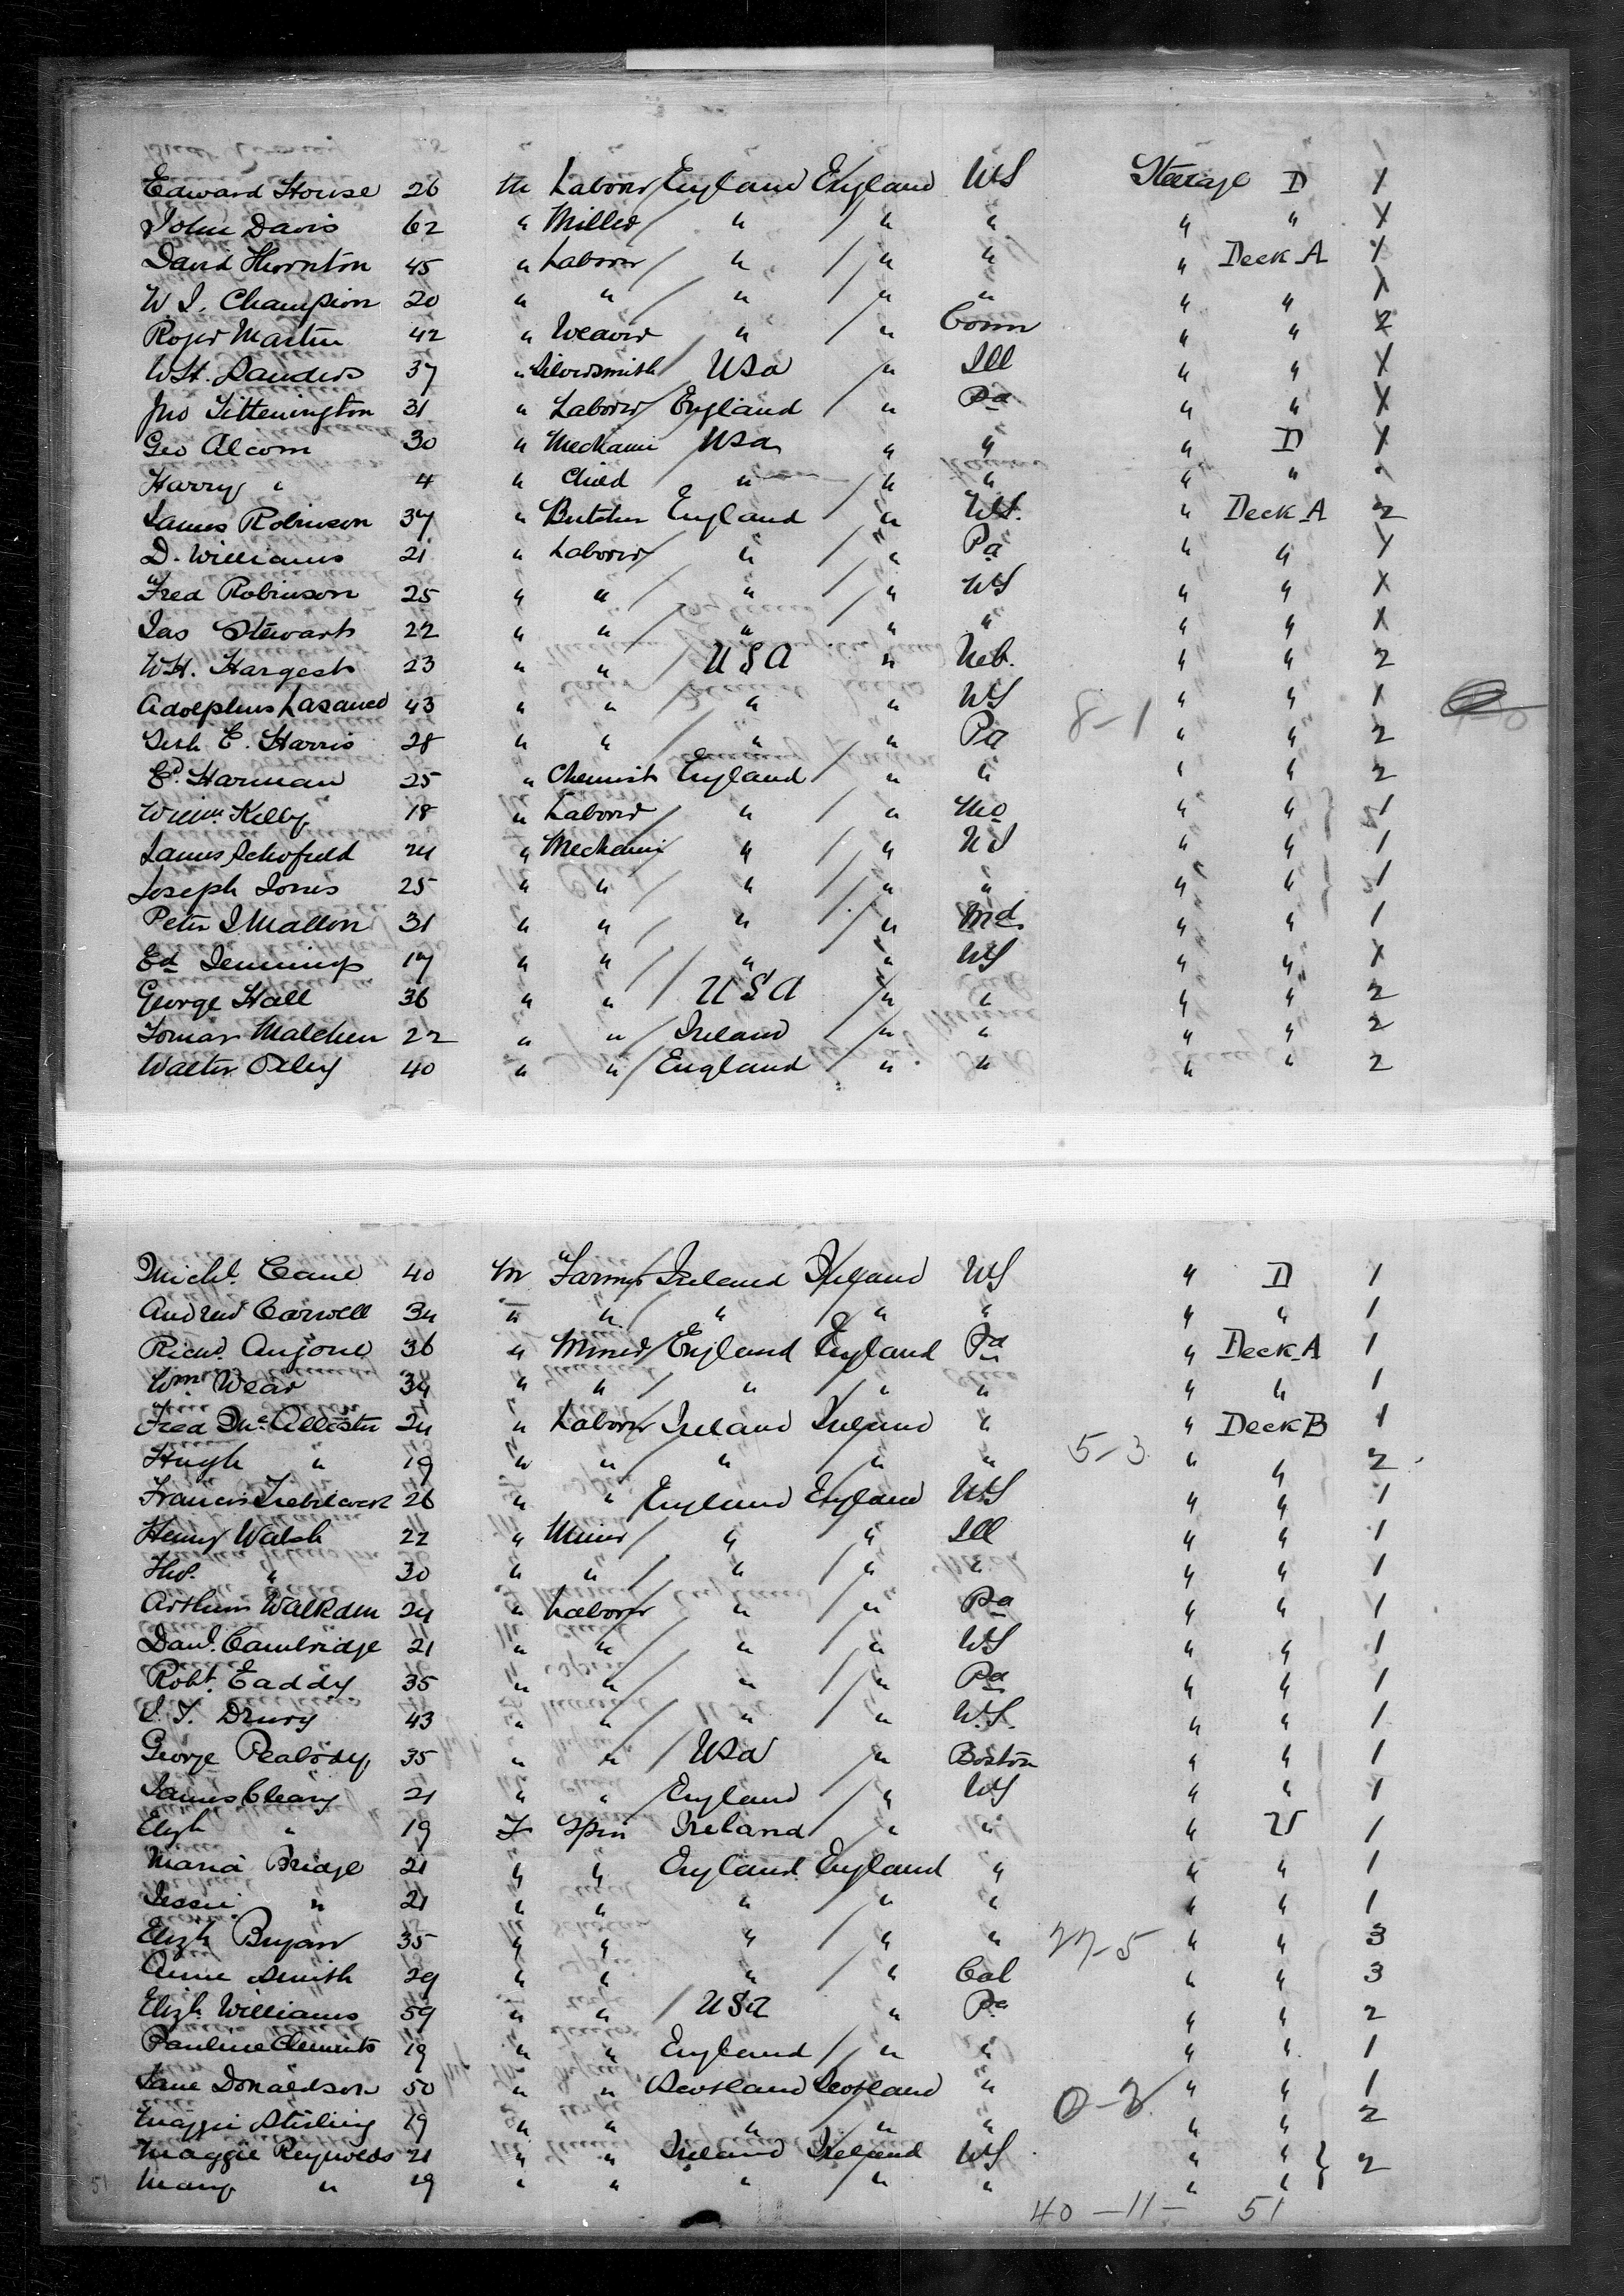 Edward House 26 m Laborer England England US Steerage D 1
John Davis 62 " Miller " " " " " 1
David Thornton 45 " Laborer " " " " Deck A 1
W. J. Champion 20 " " " " " " " 1
Roger Martin 42 " Weaver " " Conn " " 2
W.H. Sanders 37 " Silversmith USA " Ill " " 1
Jno Tittenington 31 " Laborer England " Pa " " 1
Geo Alcorn 30 " Mechanic USA " " " D 1
Harry " 4 " Child " " " " " "
James Robinson 37 " Butcher England " US. " Deck A 2
D. Williams 21 " Laborer " " Pa " " 1
Fred Robinson 25 " " " " US " " 1
Jas Stewart 22 " " " " " " " 1
W.H. Hargest 23 " " USA " Neb. " " 2
Adolphus 43 " " " " US 8-1 " " 1
E. Harris 28 " " " " Pa " " 2
Ed. Harman 25 " Chemist England " " " " 2
Willm Kelly 18 " Laborer " " Mo " " 1
James Schofield 24 " Mechanic " " US " " 1
Joseph Jones 25 " " " " " " " 1
Peter J Mallon 31 " " " " Md. " " 1
Ed Jennings 17 " " " " US " " 1
George Hall 36 " " USA " " " " 2
22 " " Ireland " " " " 2
Walter 40 " " England " " " " 2
Michl. Cane 40 m Farmer Ireland Ireland US " D 1
Andrew Carwell 34 " " " " " " " 1
Richd. 36 " Miner England England Pa " Deck A 1
Wm. Wear 34 " " " " " " " 1
Fred McAllister 24 " Laborer Ireland Ireland " " Deck B 1
Hugh " 19 " " " " " 5-3 " " 2
Francis Trebilcock 26 " " England England US " " 1
Henry Walsh 22 " Miner " " Ill " " 1
Tho. " 30 " " " " " " " 1
Arthur Walkden 24 " Laborer " " Pa " " 1
Danl. Cambridge 21 " " " " US " " 1
Robt. Eaddy 35 " " " " Pa " " 1
J. T. Drury 43 " " " " U.S. " " 1
George Peabody 35 " " USA " Boston " " 1
James Cleary 21 " " England " US " " 1
Elizh " 19 F Spin Ireland " " " 1
Maria Bridge 21 " " England England " " " 1
Jessie " 21 " " " " " " " 1
Elizh Bryan 35 " " " " " 27-5 " " 3
Annie Smith 29 " " " " Cal " " 3
Elizh Williams 59 " " USA " Pa " " 2
Pauline Clements 19 " " England " " " " 1
Jane Donaldson 50 " " Scotland Scotland " " " 1
Maggie Stirling 19 " " " " " " " 2
Maggie Reynolds 21 " " Ireland Ireland US " " 2
51 Mary " 19 " " " " " " "
40 - 11 - 51